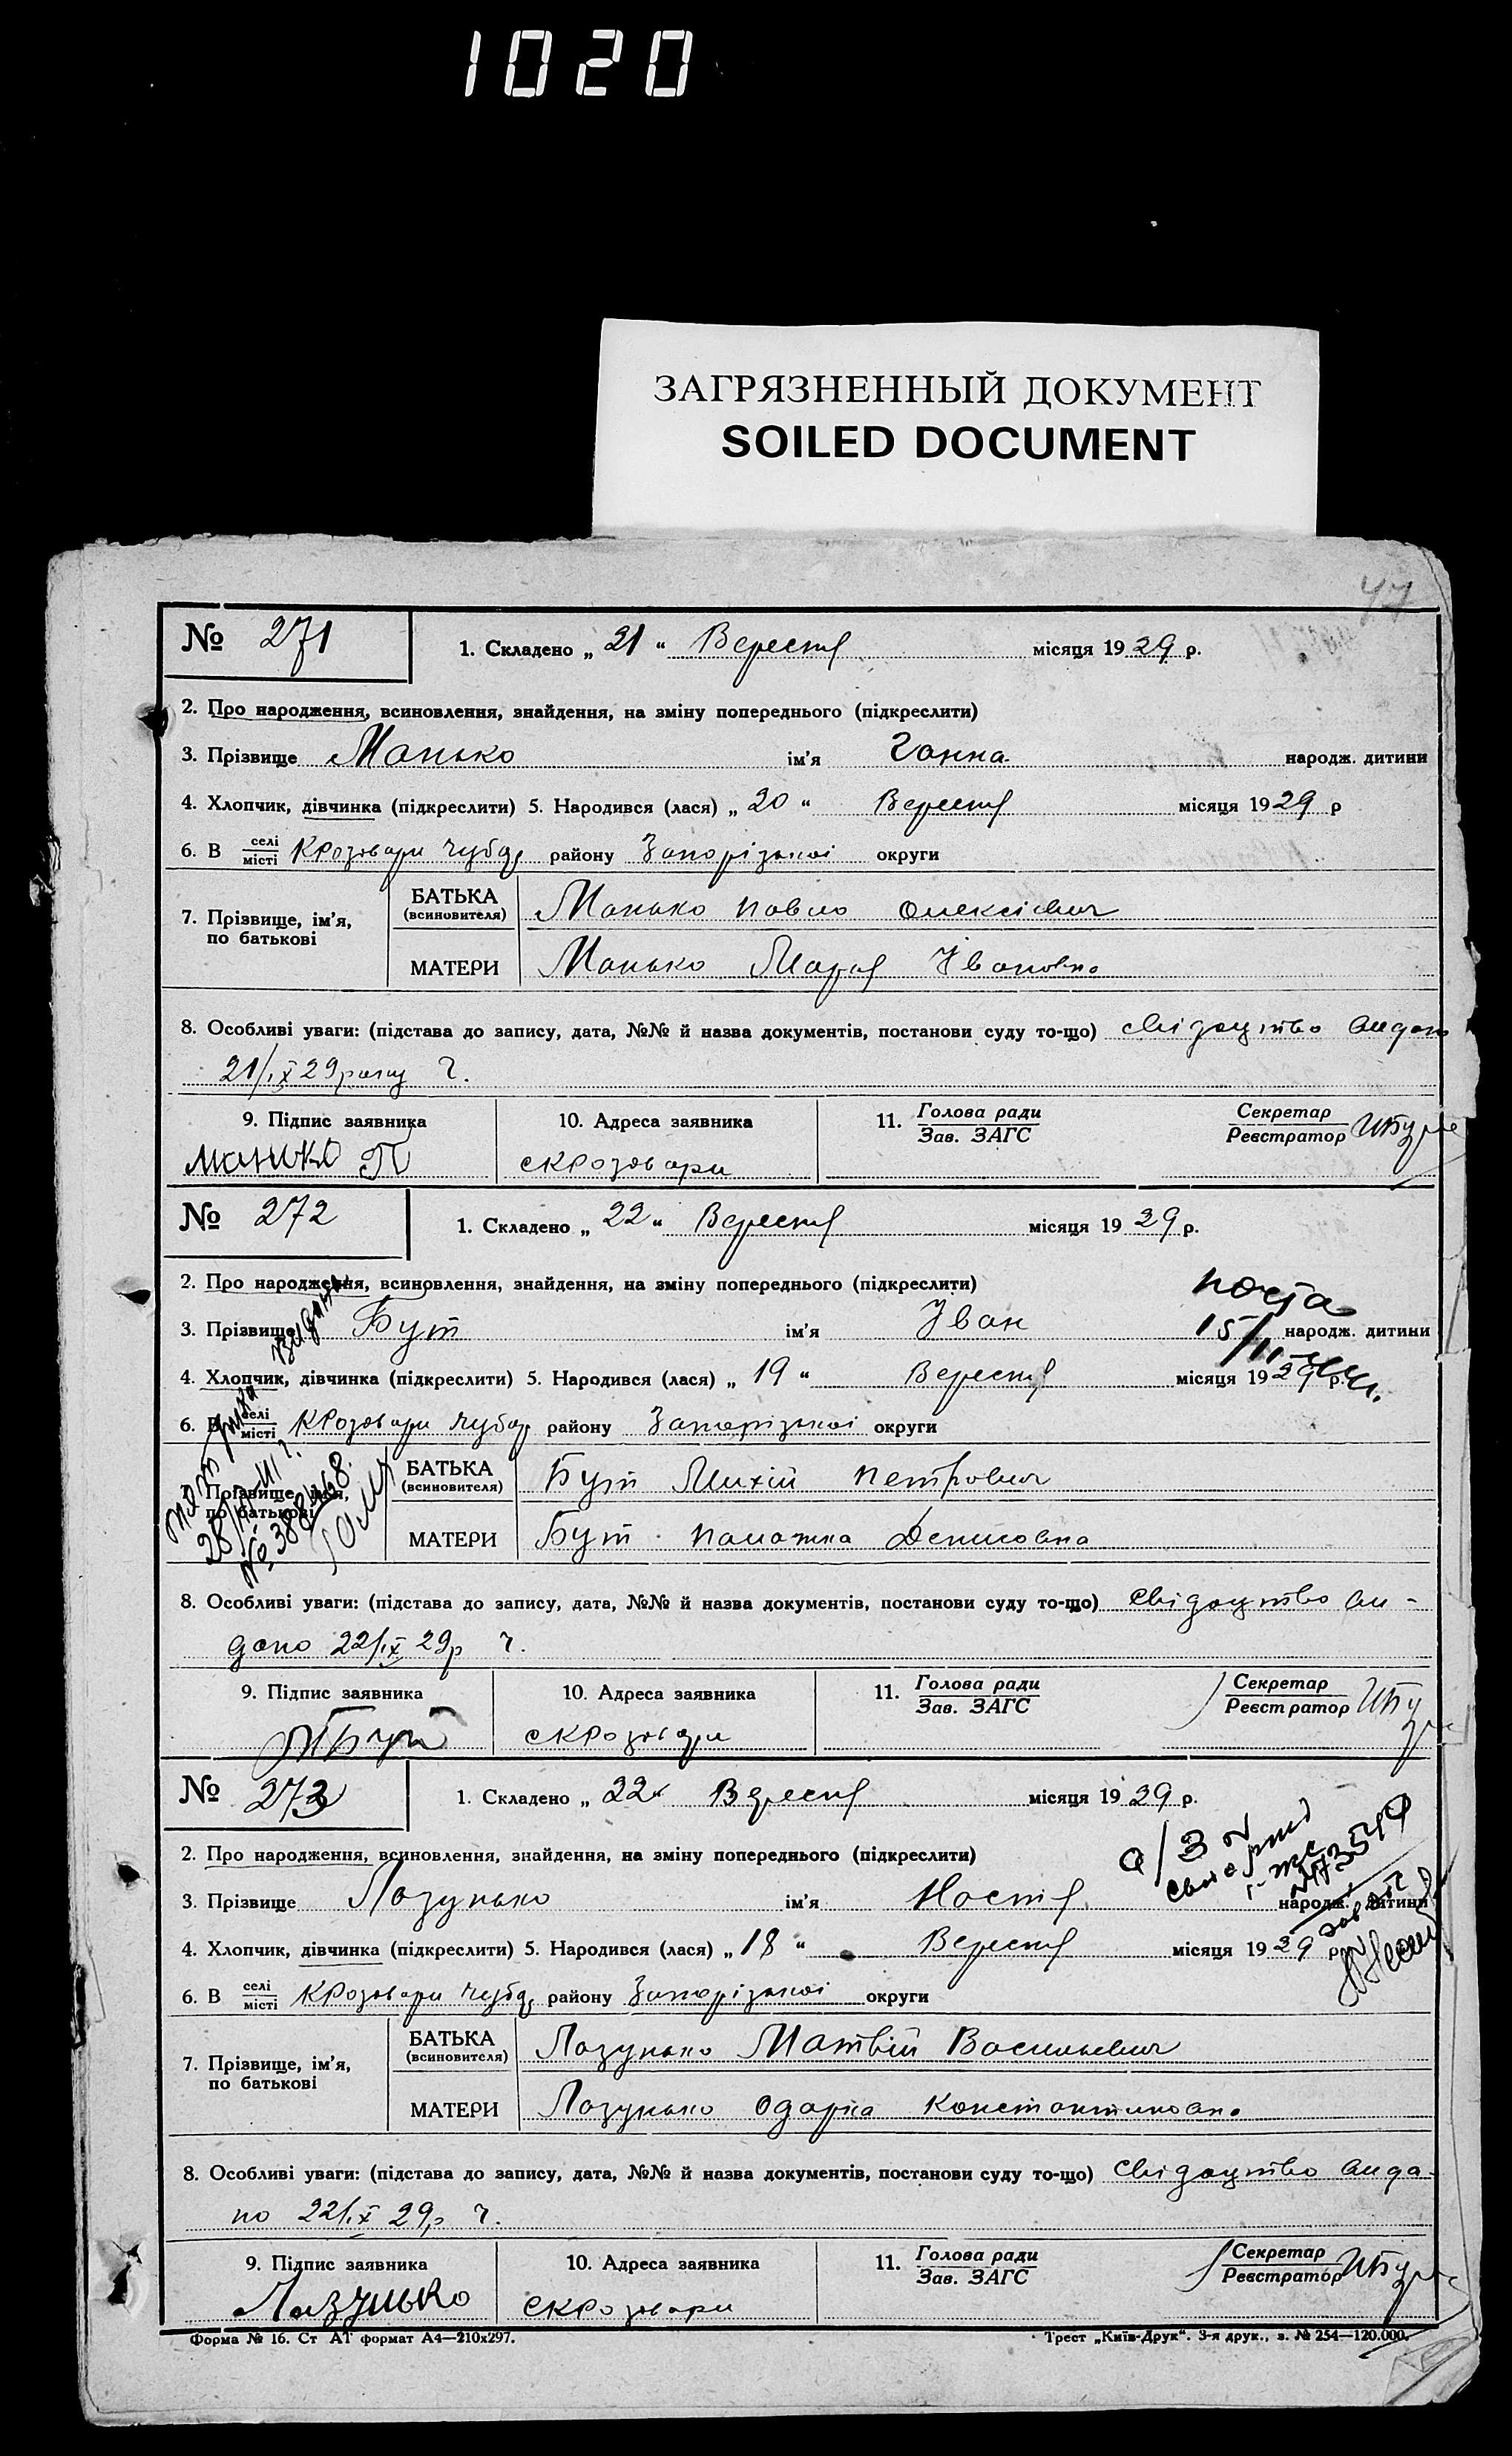 1020
ЗАГРЯЗНЕННЫЙ ДОКУМЕНТ
SOILED DOCUMENT
47
№ 271 1. Складено „ 21 “ Вересня місяця 1929 р.
2. Про народження, всиновлення, знайдення, на зміну попереднього (підкреслити)
3. Прізвище Манько ім’я Ганна народж. дитини
4. Хлопчик, дівчинка (підкреслити) 5. Народився (лася) „ 20 “ Вересня місяця 1929 р
6. В селі місті Крозовари Чубар району Запорізької округи
7. Прізвище, ім’я, по батькові
БАТЬКА (всиновителя) Манько Павло Олексієвич
МАТЕРИ Манько Марія Івановна
8. Особливі уваги: (підстава до запису, дата, №№ й назва документів, постанови суду то-що) свідоцтво видано
21/IX 29 року
9. Підпис заявника 10. Адреса заявника 11. Голова ради Зав. ЗАГС Секретар Реєстратор
Манько П с Крозовари
№ 272 1. Складено „ 22 “ Вересня місяця 1929 р.
2. Про народження, всиновлення, знайдення, на зміну попереднього (підкреслити)
3. Прізвище Бут ім’я Іван народж. дитини
15/II
4. Хлопчик, дівчинка (підкреслити) 5. Народився (лася) „ 19 “ Вересня місяця 1929 р.
6. В селі місті Крозовари Чубар району Запорізької округи
7. Прізвище, ім’я, по батькові
БАТЬКА (всиновителя) Бут Михій Петрович
МАТЕРИ Бут Палажка Денисовна
№ 388468
8. Особливі уваги: (підстава до запису, дата, №№ й назва документів, постанови суду то-що) свідоцтво ви-
дано 22/IX 29р
9. Підпис заявника 10. Адреса заявника 11. Голова ради Зав. ЗАГС Секретар Реєстратор
Бут с Крозовари
№ 273 1. Складено „ 22 “ Вересня місяця 1929 р.
2. Про народження, всиновлення, знайдення, на зміну попереднього (підкреслити)
3. Прізвище Лазунько ім’я Настя народж. дитини
4. Хлопчик, дівчинка (підкреслити) 5. Народився (лася) „ 18 “ Вересня місяця 1929 р
6. В селі місті Крозовари Чубар району Запорізької округи
7. Прізвище, ім’я, по батькові
БАТЬКА (всиновителя) Лазунько Матвій Васильевич
МАТЕРИ Лазунько Одарка Константиновна
8. Особливі уваги: (підстава до запису, дата, №№ й назва документів, постанови суду то-що) свідоцтво вида-
но 22/IX 29р
9. Підпис заявника 10. Адреса заявника 11. Голова ради Зав. ЗАГС Секретар Реєстратор
Лазунько с Крозовари
Форма № 16. Ст АТ формат А4—210х297. Трест „Київ-Друк“. 3-я друк., з. № 254—120.000.